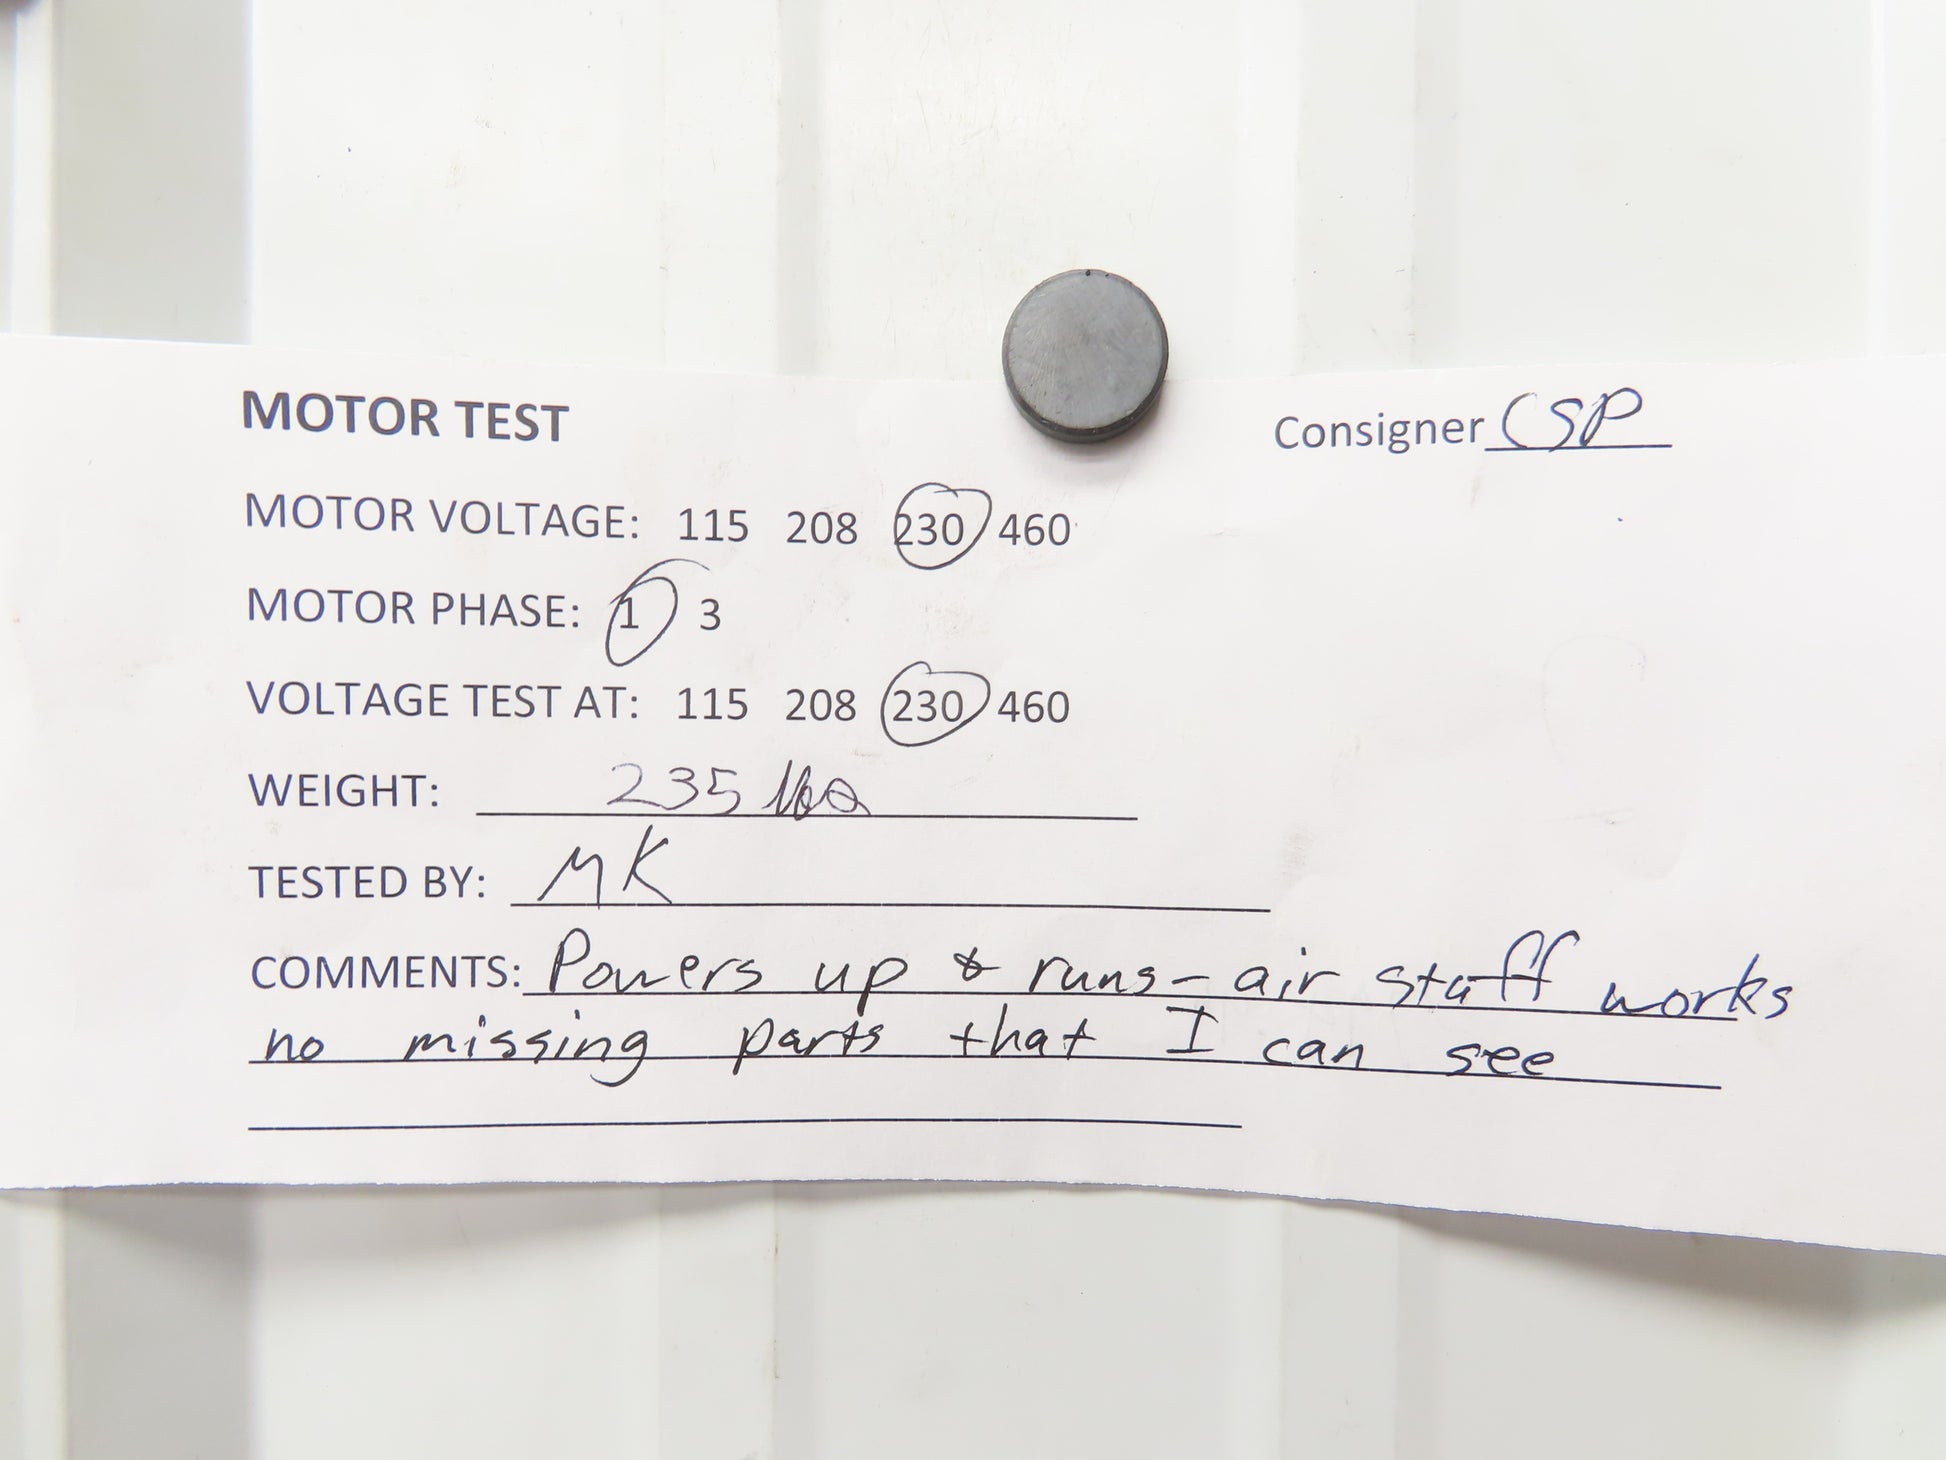 MOTOR TEST Consigner CSP
MOTOR VOLTAGE: 115 208 230 460
MOTOR PHASE: 1 3
VOLTAGE TEST AT: 115 208 230 460
WEIGHT: 235 lbs
TESTED BY: MK
COMMENTS: Powers up & runs - air stuff works
no missing parts that I can see